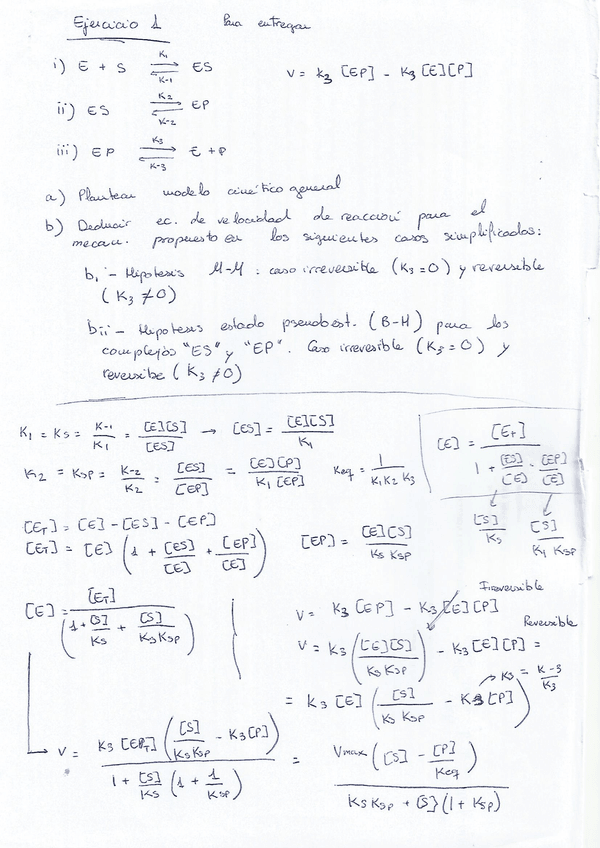 Ejercicio 1 Para entregar
i) E + S ⇌ ES K1 K-1 V = K3 [EP] - K3 [E][P]
ii) ES ⇌ EP K2 K-2
iii) EP ⇌ E + P K3 K-3
a) Plantear modelo cinético general
b) Deducir ec. de velocidad de reacción para el
mecan. propuesto en los siguientes casos simplificados:
bi - Hipotesis M-M : caso irreversible (K3 = 0) y reversible
(K3 ≠ 0)
bii - Hipotesis estado pseudoest. (B-H) para los
complejos "ES" y "EP". Caso irreversible (K3 = 0) y
reversibe (K3 ≠ 0)
K1 = Ks = K-1/K1 = [E][S]/[ES] → [ES] = [E][S]/K1
[E] = [ET] / (1 + [ES]/[E] - [EP]/[E])
K2 = KSP = K-2/K2 = [ES]/[EP] = [E][P]/K1 [EP] Keq = 1/K1 K2 K3
[S]/Ks [S]/K1 KSP
[ET] = [E] - [ES] - [EP]
[ET] = [E] (1 + [ES]/[E] + [EP]/[E]) [EP] = [E][S]/Ks KSP
Irreversible
[E] = [ET] / (1 + [S]/Ks + [S]/Ks KSP) V = K3 [EP] - K3 [E][P]
Reversible
V = K3 ([E][S]/Ks KSP) - K3 [E][P] =
= K3 [E] ([S]/Ks KSP - K3 [P]) → K3 = K-3/K3
V = K3 [EPT] ([S]/Ks KSP - K3 [P]) / (1 + [S]/Ks (1 + 1/KSP)) = Vmax ([S] - [P]/Keq) / (Ks KSP + [S} (1 + KSP))